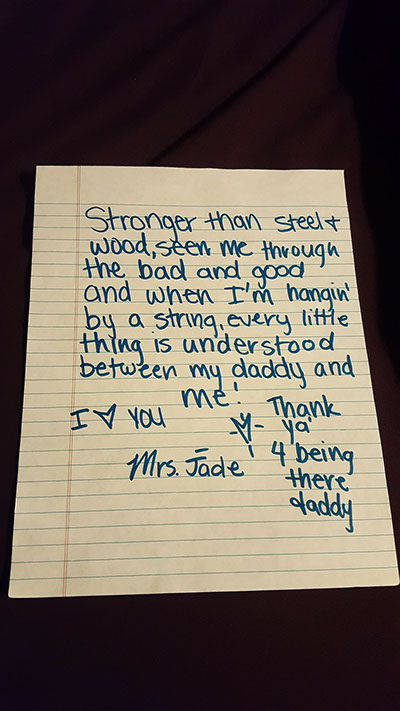 Stronger than steel +
wood, seen me through
the bad and good
and when I'm hangin'
by a string, every little
thing is understood
between my daddy and
me!
I ♡ YOU
Thank
ya'
4 being
there
daddy
Mrs. Jade